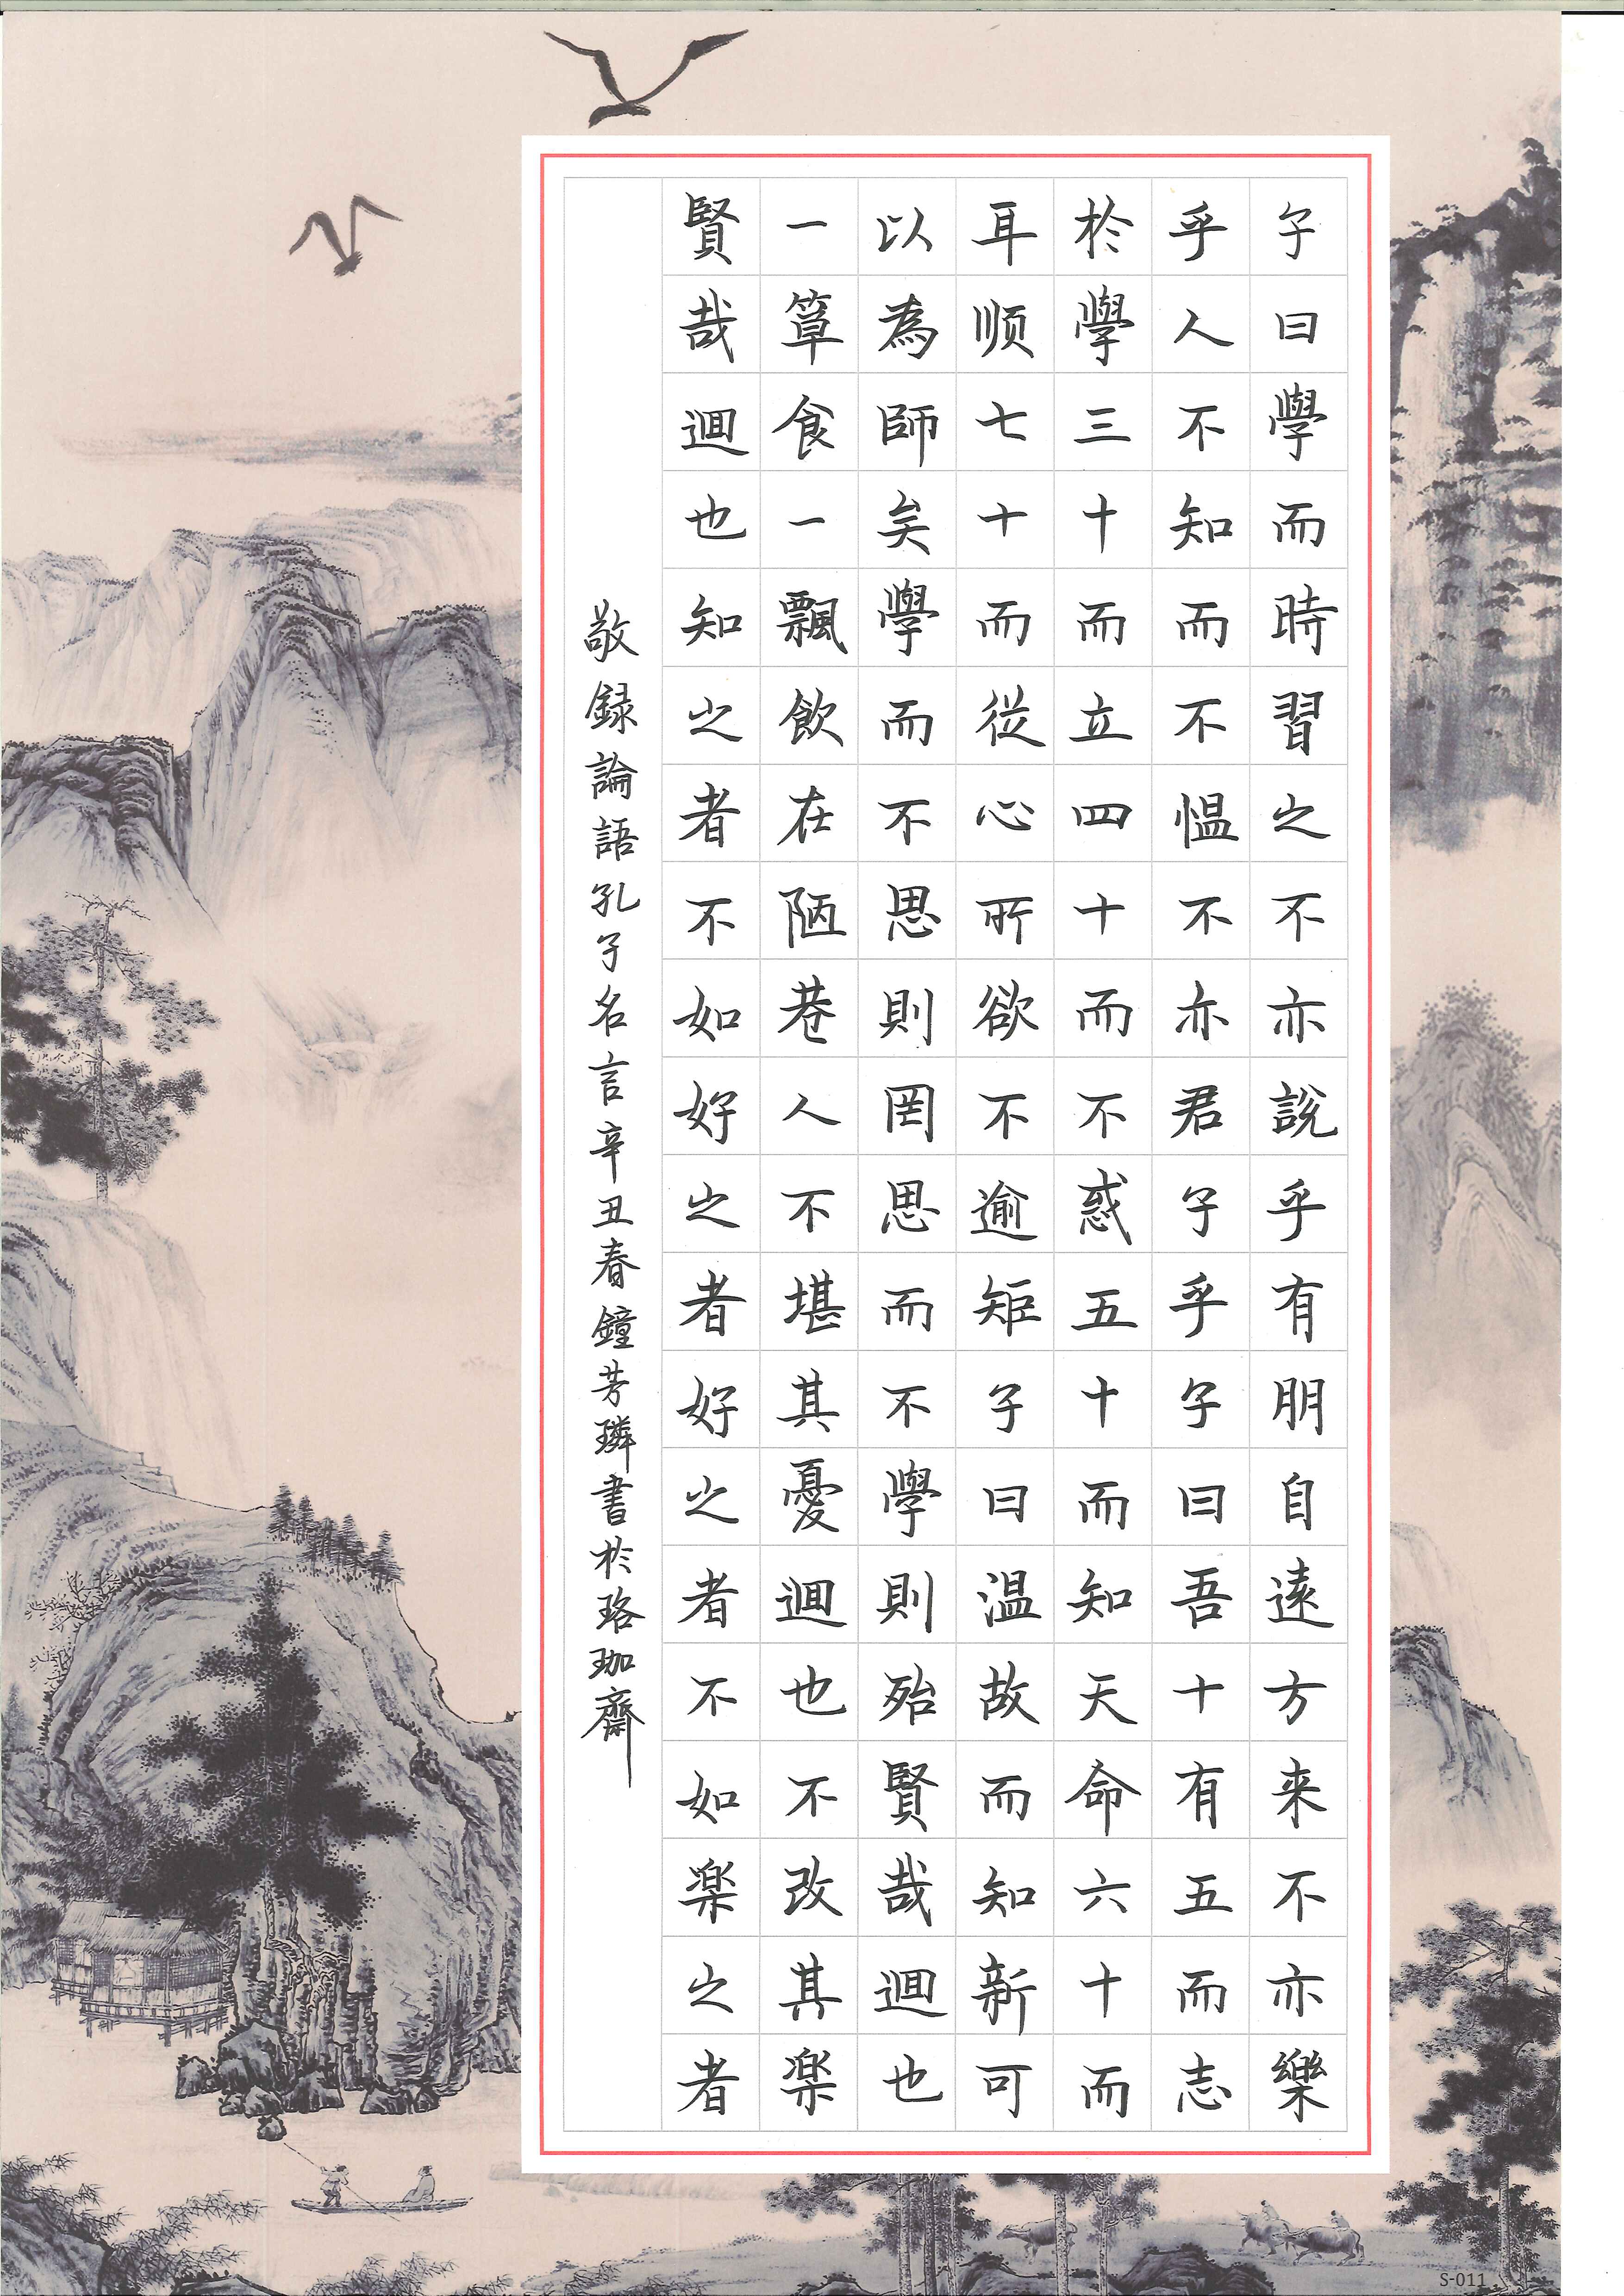 子曰學而時習之不亦說乎有朋自遠方来不亦樂
乎人不知而不愠不亦君子乎子曰吾十有五而志
於學三十而立四十而不惑五十而知天命六十而
耳顺七十而從心所欲不逾矩子曰温故而知新可
以為師矣學而不思則罔思而不學則殆賢哉迴也
一簞食一飄飲在陋巷人不堪其憂迴也不改其楽
賢哉迴也知之者不如好之者好之者不如楽之者
敬録論語孔子名言辛丑春鐘芳璘書於珞珈齋
S-011